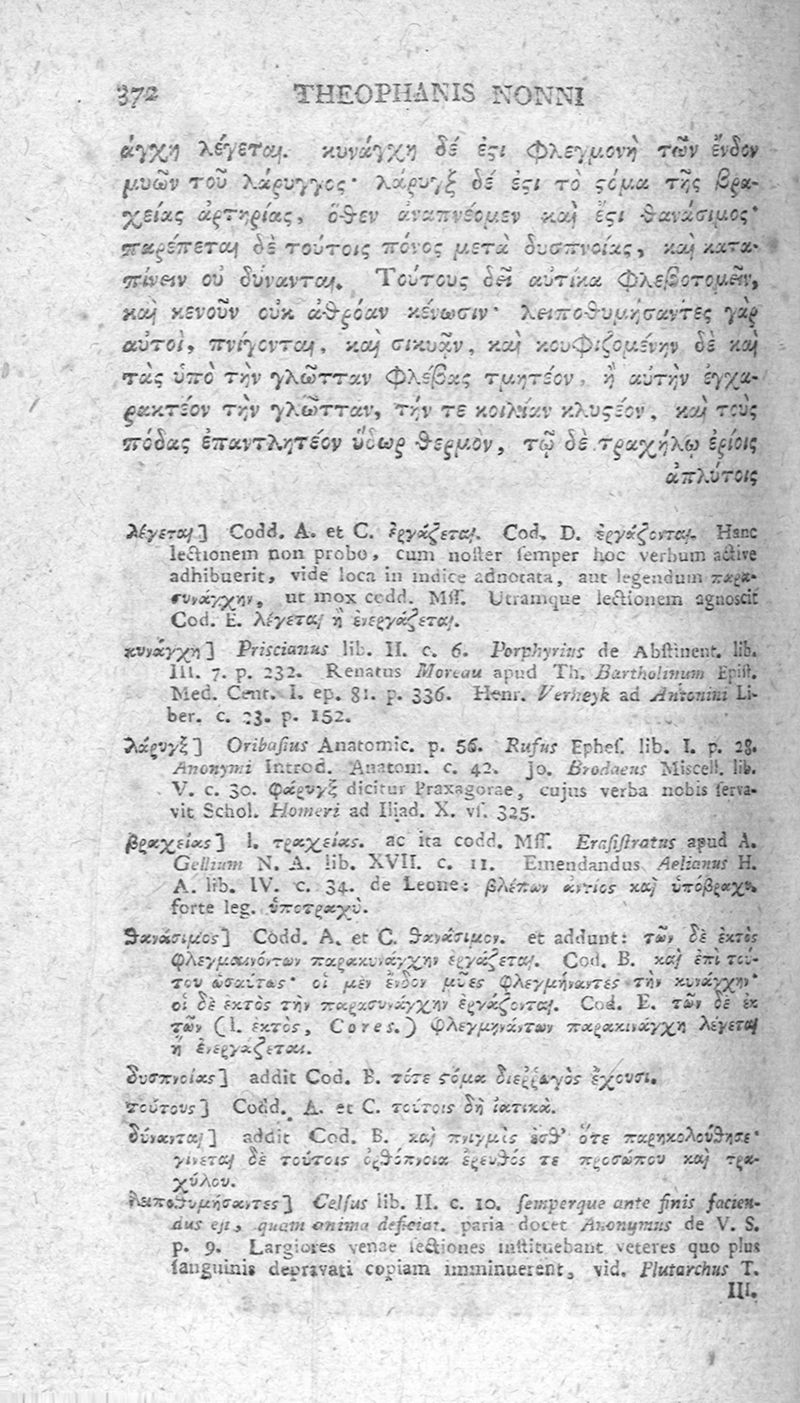 372 THEOPHANIS NONNI
άγχη λέγεται. κυνάγχη δέ ἐϛι φλεγμονὴ τῶν ἔνδον
μυῶν τοῦ λάρυγγος· λάρυγξ δέ ἐϛι τὸ ϛόμα τῆς βρα-
χείας ἀρτηρίας, ὅθεν ἀναπνέομεν καὶ ἔϛι θανάσιμος·
παρέπεται δὲ τούτοις πόνος μετὰ δυσπνοίας, καὶ κατα-
πίνειν οὐ δύνανται. Τούτους δεῖ αὐτίκα φλεβοτομεῖν,
καὶ κενοῦν οὐκ ἀθρόαν κένωσιν· λειποθυμήσαντες γὰρ
αὐτοὶ, πνίγονται, καὶ σικυᾶν, καὶ κουφιζομένην δὲ καὶ
τὰς ὑπὸ τὴν γλῶτταν φλέβας τμητέον, ἢ αὐτὴν ἐγχα-
ρακτέον τὴν γλῶτταν, τήν τε κοιλίαν κλυϛέον, καὶ τοὺς
πόδας ἐπαντλητέον ὕδωρ θερμὸν, τῷ δὲ τραχήλῳ ἐρίοις
ἀπλύτοις
λέγεται] Codd. A. et C. ἐργάζεται. Cod. D. ἐργάζονται. Hanc
lectionem non probo, cum noſter ſemper hoc verbum active
adhibuerit, vide loca in indice adnotata, aut legendum παρα-
συνάγχην, ut mox codd. Mſſ. Utramque lectionem agnoscit
Cod. E. λέγεται ἢ ἐνεργάζεται.
κυνάγχη] Priscianus lib. II. c. 6. Porphyrius de Abſtinent. lib.
III. 7. p. 232. Renatus Moreau apud Th. Bartholinum Epiſt.
Med. Cent. I. ep. 81. p. 336. Henr. Verheyk ad Antonini Li-
ber. c. 23. p. 152.
λάρυγξ] Oribaſius Anatomic. p. 56. Rufus Epheſ. lib. I. p. 28.
Anonymi Introd. Anatom. c. 42. Jo. Brodaeus Miscell. lib.
V. c. 30. φάρυγξ dicitur Praxagorae, cujus verba nobis ſerva-
vit Schol. Homeri ad Iliad. X. vſ. 325.
βραχείας] l. τραχείας. ac ita codd. Mſſ. Eraſiſtratus apud A.
Gellium N. A. lib. XVII. c. 11. Emendandus Aelianus H.
A. lib. IV. c. 34. de Leone: βλέπων ἀντίος καὶ ὑπόβραχυ.
forte leg. ὑποτραχὺ.
θανάσιμος] Codd. A. et C. θανάσιμον. et addunt: τῶν δὲ ἐκτὸς
φλεγμαινόντων παρακυνάγχην ἐργάζεται. Cod. B. καὶ ἐπὶ τού-
του ὡσαύτως· οἱ μὲν ἔνδον μῦες φλεγμήναντες τὴν κυνάγχην·
οἱ δὲ ἐκτὸς τὴν παρασυνάγχην ἐργάζονται. Cod. E. τῶν δὲ ἐκ
τῶν (l. ἐκτὸς, Cores.) φλεγμηνάντων παρακινάγχη λέγεται
ἢ ἐνεργάζεται.
δυσπνοίας] addit Cod. B. τότε ϛόμα διεῤῥωγὸς ἔχουσι.
τούτους] Codd. A. et C. τούτοις δὴ ἰατικὰ.
δύνανται] addit Cod. B. καὶ πνιγμὸς ἐσθ' ὅτε παρηκολούθησε·
γίνεται δὲ τούτοις ὀρθόπνοια ἐρευθός τε προσώπου καὶ τρα-
χύλου.
λειποθυμήσαντες] Celſus lib. II. c. 10. ſemperque ante finis facien-
dus eſt, quam anima deficiat. paria docet Anonymus de V. S.
p. 9. Largiores venae ſectiones inſtituebant veteres quo plus
ſanguinis depravati copiam imminuerent, vid. Plutarchus T.
III.